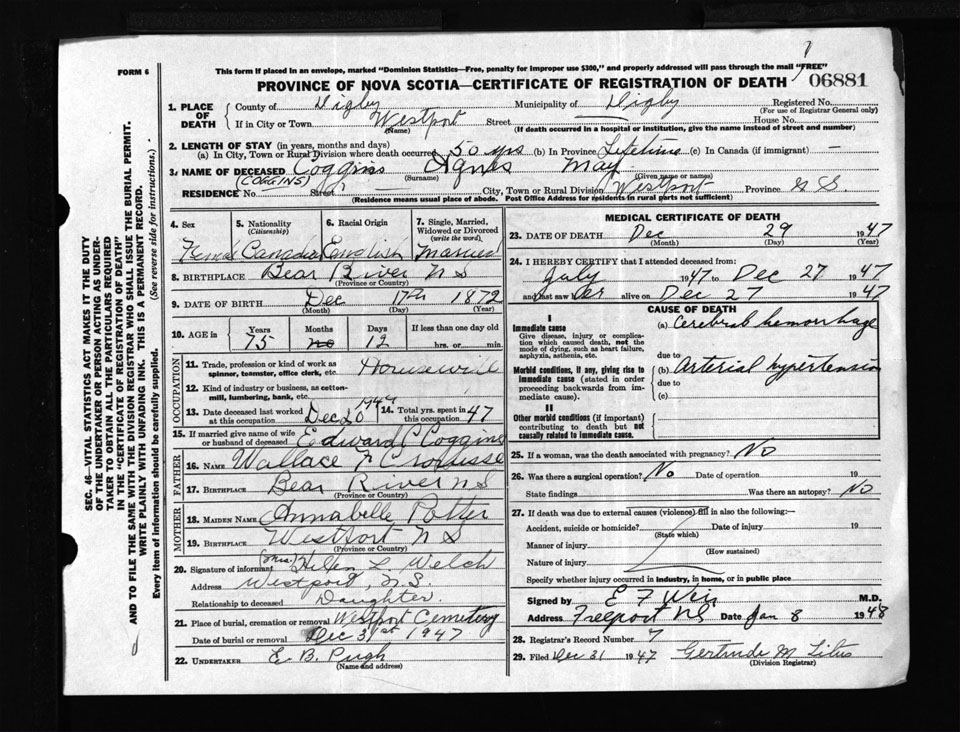 FORM 6
This form if placed in an envelope, marked "Dominion Statistics—Free, penalty for improper use $300," and properly addressed will pass through the mail "FREE"
PROVINCE OF NOVA SCOTIA—CERTIFICATE OF REGISTRATION OF DEATH 06881
1. PLACE OF DEATH
County of Digby Municipality of Digby Registered No.
(For use of Registrar General only)
If in City or Town Westport Street House No.
(Name) (If death occurred in a hospital or institution, give the name instead of street and number)
2. LENGTH OF STAY (in years, months and days)
(a) In City, Town or Rural Division where death occurred 50 yrs (b) In Province Lifetime (c) In Canada (if immigrant) —
3. NAME OF DECEASED Coggins Agnes May
(COGGINS) (Surname) (Given name or names)
RESIDENCE No. Street City, Town or Rural Division Westport Province N S.
(Residence means usual place of abode. Post Office Address for residents in rural parts not sufficient)
SEC. 46—VITAL STATISTICS ACT MAKES IT THE DUTY
OF THE UNDERTAKER OR PERSON ACTING AS UNDER-
TAKER TO OBTAIN ALL THE PARTICULARS REQUIRED
IN THE "CERTIFICATE OF REGISTRATION OF DEATH"
AND TO FILE THE SAME WITH THE DIVISION REGISTRAR WHO SHALL ISSUE THE BURIAL PERMIT.
WRITE PLAINLY WITH UNFADING INK. THIS IS A PERMANENT RECORD.
Every item of information should be carefully supplied. (See reverse side for instructions.)
4. Sex 5. Nationality (Citizenship) 6. Racial Origin 7. Single, Married, Widowed or Divorced (write the word)
English Married
8. BIRTHPLACE Bear River N S
(Province or Country)
9. DATE OF BIRTH Dec 17th 1872
(Month) (Day) (Year)
10. AGE in Years Months Days If less than one day old
75 no 12 hrs. or min.
OCCUPATION
11. Trade, profession or kind of work as spinner, teamster, office clerk, etc. Housewife
12. Kind of industry or business, as cotton-mill, lumbering, bank, etc.
13. Date deceased last worked at this occupation Dec 20 1947 14. Total yrs. spent in this occupation 47
15. If married give name of wife or husband of deceased Edward C Coggins
FATHER
16. Name Wallace F
17. Birthplace Bear River N S
(Province or Country)
MOTHER
18. Maiden Name Annabelle Potter
19. Birthplace Westport N S
(Province or Country)
20. Signature of informant (Mrs.) Helen L. Welch
Address Westport, N.S.
Relationship to deceased Daughter.
21. Place of burial, cremation or removal Westport Cemetery
Date of burial or removal Dec 31st 1947
22. UNDERTAKER E. B. Pugh
(Name and address)
MEDICAL CERTIFICATE OF DEATH
23. DATE OF DEATH Dec 29 1947
(Month) (Day) (Year)
24. I HEREBY CERTIFY that I attended deceased from:
July 1947 to Dec 27 1947
and last saw her alive on Dec 27 1947
CAUSE OF DEATH
I
Immediate cause (a) Cerebral hemorrhage
Give disease, injury or complication which caused death, not the mode of dying, such as heart failure, asphyxia, asthenia, etc.
due to
Morbid conditions, if any, giving rise to immediate cause (stated in order proceeding backwards from immediate cause). (b) Arterial hypertension
due to
(c)
II
Other morbid conditions (if important) contributing to death but not causally related to immediate cause.
25. If a woman, was the death associated with pregnancy? No
26. Was there a surgical operation? No Date of operation 19
State findings Was there an autopsy? No
27. If death was due to external causes (violence) fill in also the following:—
Accident, suicide or homicide? Date of injury 19
(State which)
Manner of injury
(How sustained)
Nature of injury
Specify whether injury occurred in industry, in home, or in public place
Signed by E F Weir M.D.
Address Freeport NS Date Jan 8 1948
28. Registrar's Record Number 7
29. Filed Dec 31 1947 Gertrude M Titus
(Division Registrar)